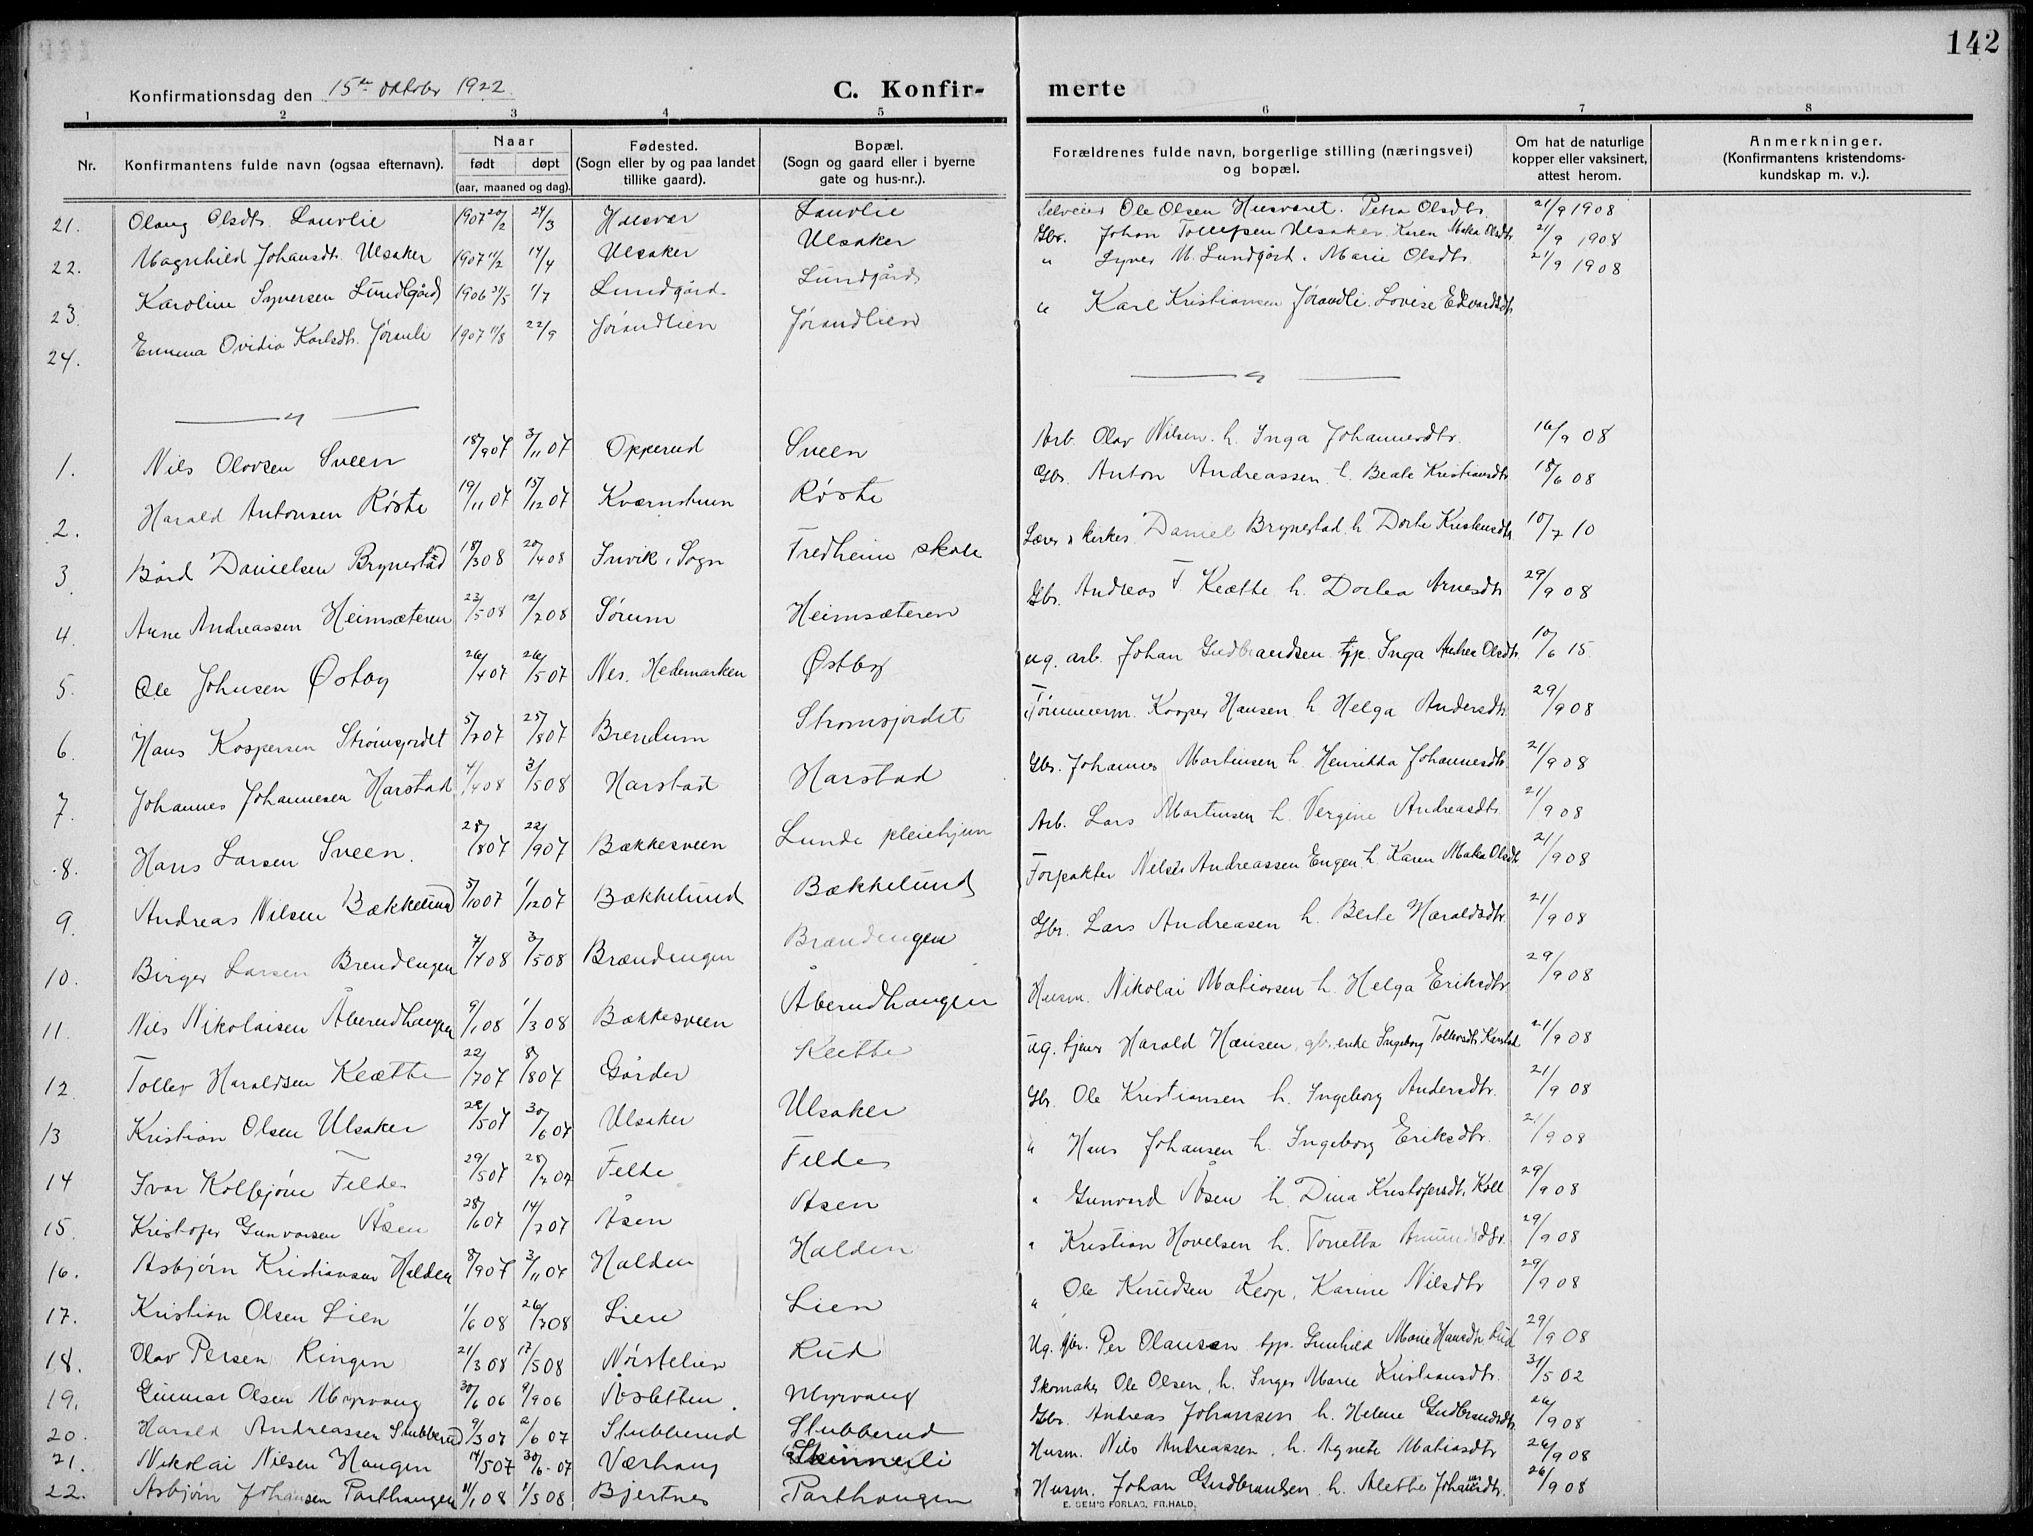 142
Konfirmationsdag den 15de oktober 1922
C. Konfir- merte
1 2 3 4 5 6 7 8
Nr. Konfirmantens fulde navn (ogsaa efternavn). Naar født døpt (aar, maaned og dag). Fødested. (Sogn eller by og paa landet tillike gaard). Bopæl. (Sogn og gaard eller i byerne gate og hus-nr.). Forældrenes fulde navn, borgerlige stilling (næringsvei) og bopæl. Om hat de naturlige kopper eller vaksinert, attest herom. Anmerkninger. (Konfirmantens kristendoms- kundskap m. v.).
21. Olaug Olsdtr. Lauvlie 1907 20/2 24/3 Husvær Lauvlie Selveier Ole Olsen Husværet. Petra Olsdtr. 21/9 1908
22. Magnhild Johansdt. Ulsaker 1907 11/2 14/4 Ulsaker Ulsaker Gbr. Johan Tollefsen Ulsaker. Karen Olsdtr 21/9 1908
23. Karoline Syversen Lundgård 1906 31/5 1/7 Lundgård Lundgård " Syver M. Lundgård. Marie Olsdtr. 21/9 1908
24. Emma Ovidia Karlsdtr. Jøranli 1907 11/8 22/9 Jørandlien Jørandlien " Karl Kristiansen Jørandli. Lovise Edvardsdtr
1. Nils Olovsen Sveen 18/9 07 3/11 07 Opperud Sveen Arb. Olav Nilsen. h. Inga Johannesdtr. 16/9 08
2. Harald Antonsen Røste 19/11 07 15/12 07 Kværnstuen Røste Gbr. Anton Andreassen h. Beate Kristiansdtr 18/6 08
3 Bård Danielsen Brynestad 18/3 08 20/4 08 Invik, Sogn Fredheim skole Lærer & kirkes. Daniel Brynestad h. Dorte Kristensdtr 10/7 10
4. Arne Andreassen Heimsæteren 23/5 08 12/7 08 Sørum Heimsæteren Gbr. Andreas T. Kleætte h. Dorlea Arnesdtr 29/9 08
5. Ole Johnsen Østby 26/4 07 26/5 07 Nes. Hedemarken Østby ug. arb. Johan Gudbrandsen tjp. Inga Andrea Olsdtr. 10/6 15.
6. Hans Kaspersen Strømsjordet 5/7 07 25/8 07 Brendum Strømsjordet Tømmerm. Kasper Hansen h Helga Andersdtr 29/9 08
7. Johannes Johannesen Harstad 4/4 08 3/5 08 Harstad Harstad Gbr. Johannes Martinsen h. Henrikka Johannesdtr 21/9 08
8. Hans Larsen Sveen. 28/8 07 22/9 07 Bækkesveen Lunde pleiehjem Arb. Lars Martinsen h. Vergine Andreasdtr. 21/9 08
9. Andreas Nilsen Bækkelund 5/10 07 1/12 07 Bækkelund Bækkelund Forpakter Nils Andreassen Engen h. Karen Olsdtr 21/9 08
10. Birger Larsen Brendengen 7/4 08 3/5 08 Brændengen Brændengen Gbr. Lars Andreasen h. Berte Haraldsdtr. 21/9 08
11. Nils Nikolaisen Åberudhaugen 9/1 08 1/3 08 Bækkesveen Åberudhaugen Husm. Nikolai Matiasen h. Helga Eriksdtr. 29/9 08
12 Tollev Haraldsen Kleætte 22/7 07 8/8 07 Gårder Kleætte ug. tjener Harald Hansen, gbr. enke Ingeborg Tollevsdtr 21/9 08
13 Kristian Olsen Ulsaker 28/5 07 30/6 07 Ulsaker Ulsaker Gbr. Ole Kristiansen h. Ingeborg Andersdtr. 21/9 08
14 Ivar Kolbjørn Felde 29/5 07 28/7 07 Felde Felde " Hans Johansen h. Ingeborg Eriksdtr. 21/9 08
15. Kristofer Gunvorsen Åsen 28/6 07 14/7 07 Åsen Åsen " Gunvord Åsen h. Dina Kristofersdtr. Koll 29/9 08
16. Asbjørn Kristiansen Halden 8/9 07 3/11 07 Halden Halden " Kristian Hovelsen h. Tonetta 29/9 08
17. Kristian Olsen Lien 1/6 08 26/7 08 Lien Lien " Ole Knudsen Klop, Karine Nilsdtr 29/9 08
18. Olav Persen Ringen 21/3 08 17/5 08 Nørstelien Rud Ug. gbr. Per Olausen tjp. Gunhild Marie Hansdtr Rud 29/9 08
19. Gunnar Olsen Myrvang 30/6 06 9/9 06 Åsletten Myrvang Skomaker Ole Olsen, h. Inger Marie Kristiansdtr. 31/5 02
20. Harald Andreassen Stubberud 9/3 07 2/6 07 Stubberud Stubberud Gbr. Andreas Johansen h. Helene Gudbrandsdtr 26/9 08
21. Nikolai Nilsen Haugen 14/5 07 30/6 07 Værhaug Skinnerli Husm. Nils Andreassen, h. Agnete Matiasdtr 26/9 08
22. Asbjørn Johansen Parthaugen 11/1 08 1/5 08 Bjertnes Parthaugen Husm. Johan Gudbrandsen h. Alette Johansdtr. 26/9 08
E. SEM'S FORLAG, FR.HALD.